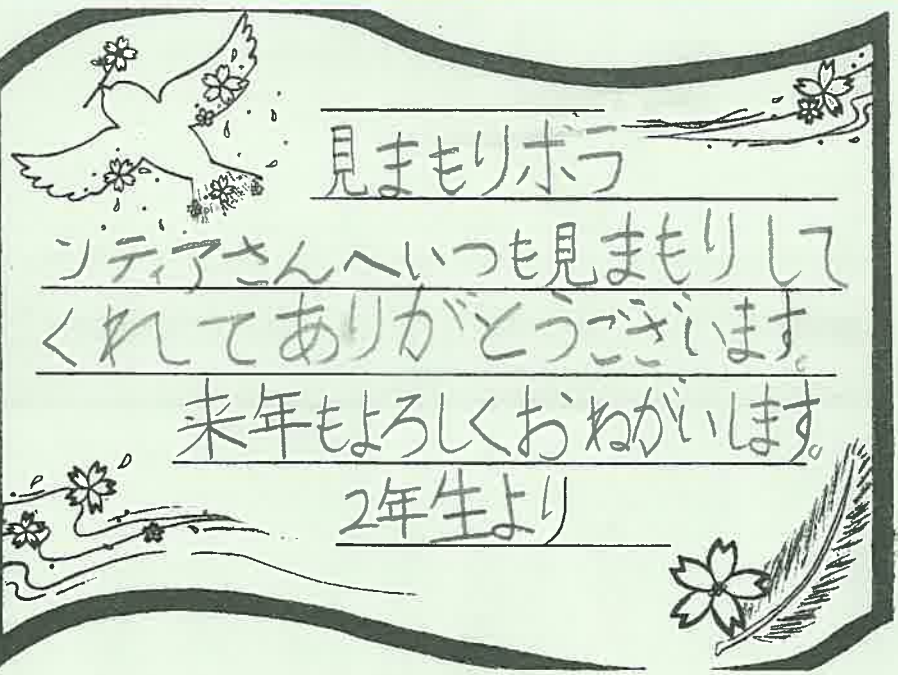 見まもりボラ
ンティアさんへいつも見まもりして
くれてありがとうございます。
来年もよろしくおねがいします。
2年生より